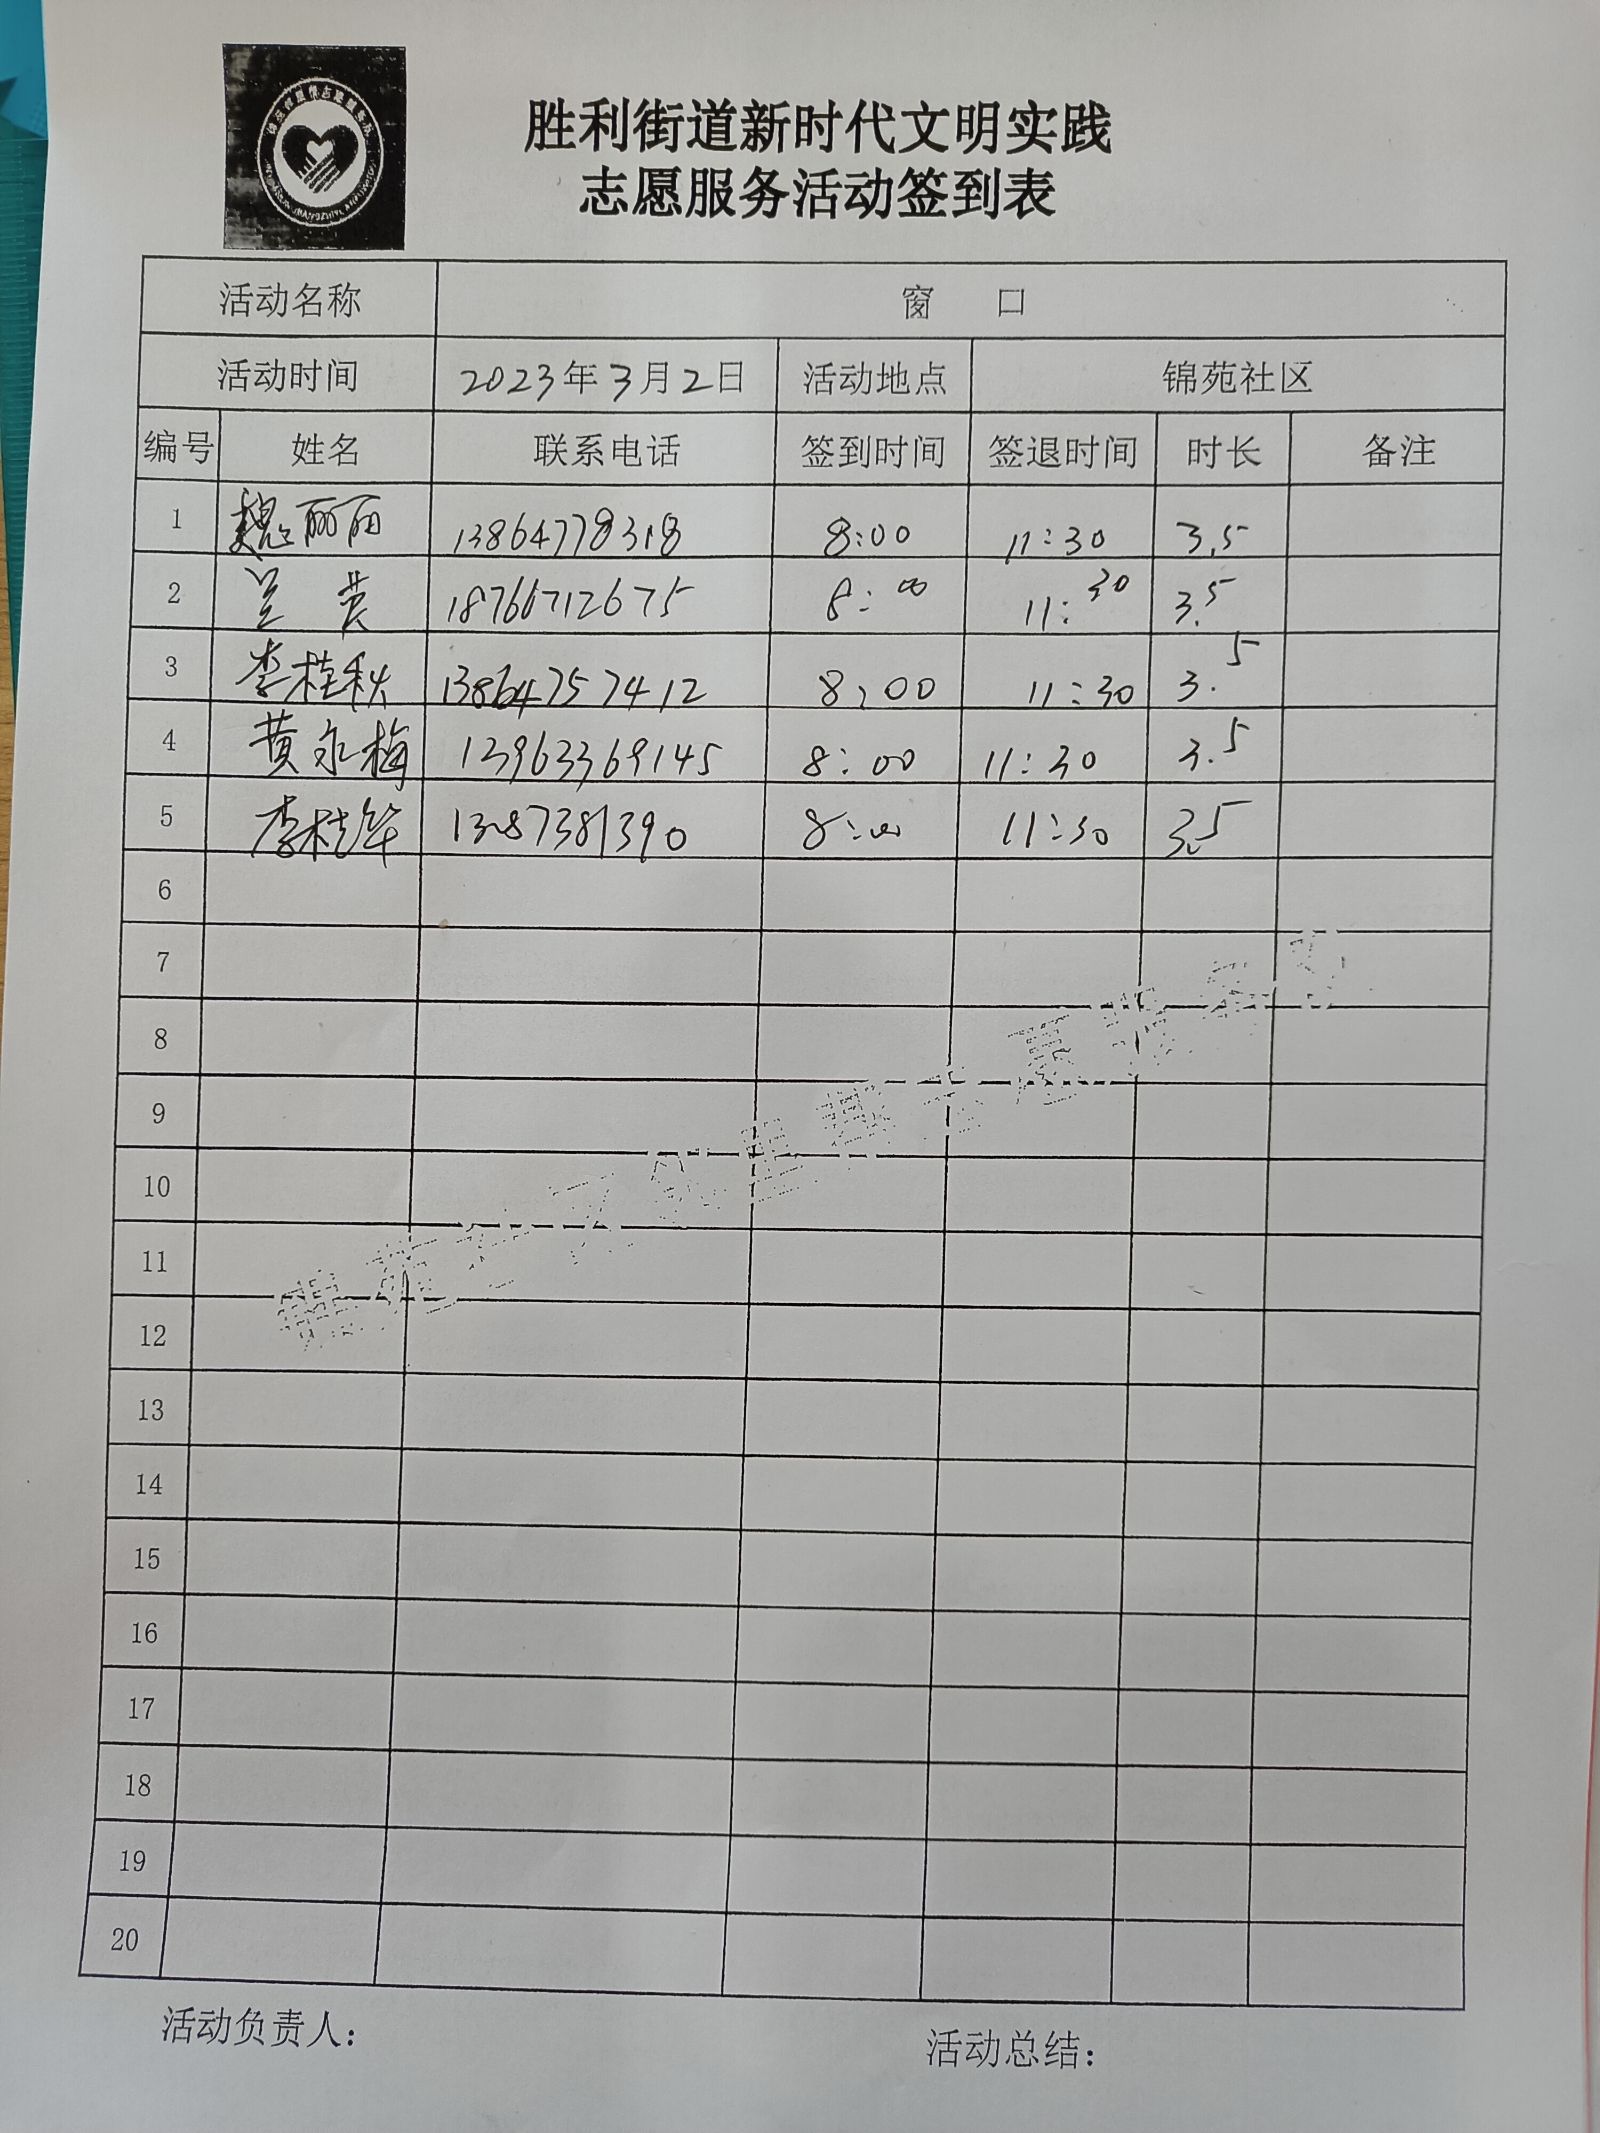 胜利街道新时代文明实践
志愿服务活动签到表
活动名称 窗 口
活动时间 2023年3月2日 活动地点 锦苑社区
编号 姓名 联系电话 签到时间 签退时间 时长 备注
1 魏丽丽 13864778318 8:00 11:30 3.5
2 兰黄 18766712675 8:00 11:30 3.5
3 李桂秋 13864757412 8:00 11:30 3.5
4 黄永梅 13963369145 8:00 11:30 3.5
5 李桂华 13287381390 8:00 11:30 3.5
6
7
8
9
10
11
12
13
14
15
16
17
18
19
20
活动负责人:
活动总结: